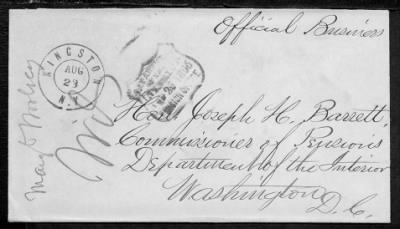 Official Business
KINGSTON
AUG
29
N.Y.
Hon. Joseph H. Barrett,
Commissioner of Pensions
Department of the Interior
Washington
D.C.